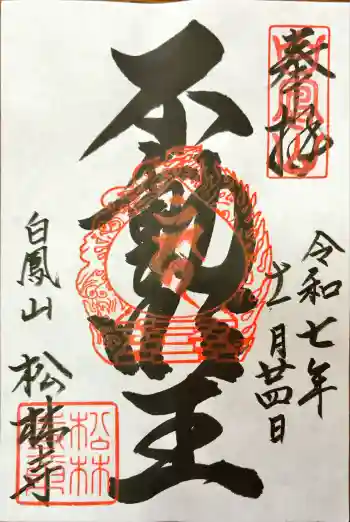 奉拝
令和七年
十一月廿四日
不動明王
白鳳山
松林寺
松林